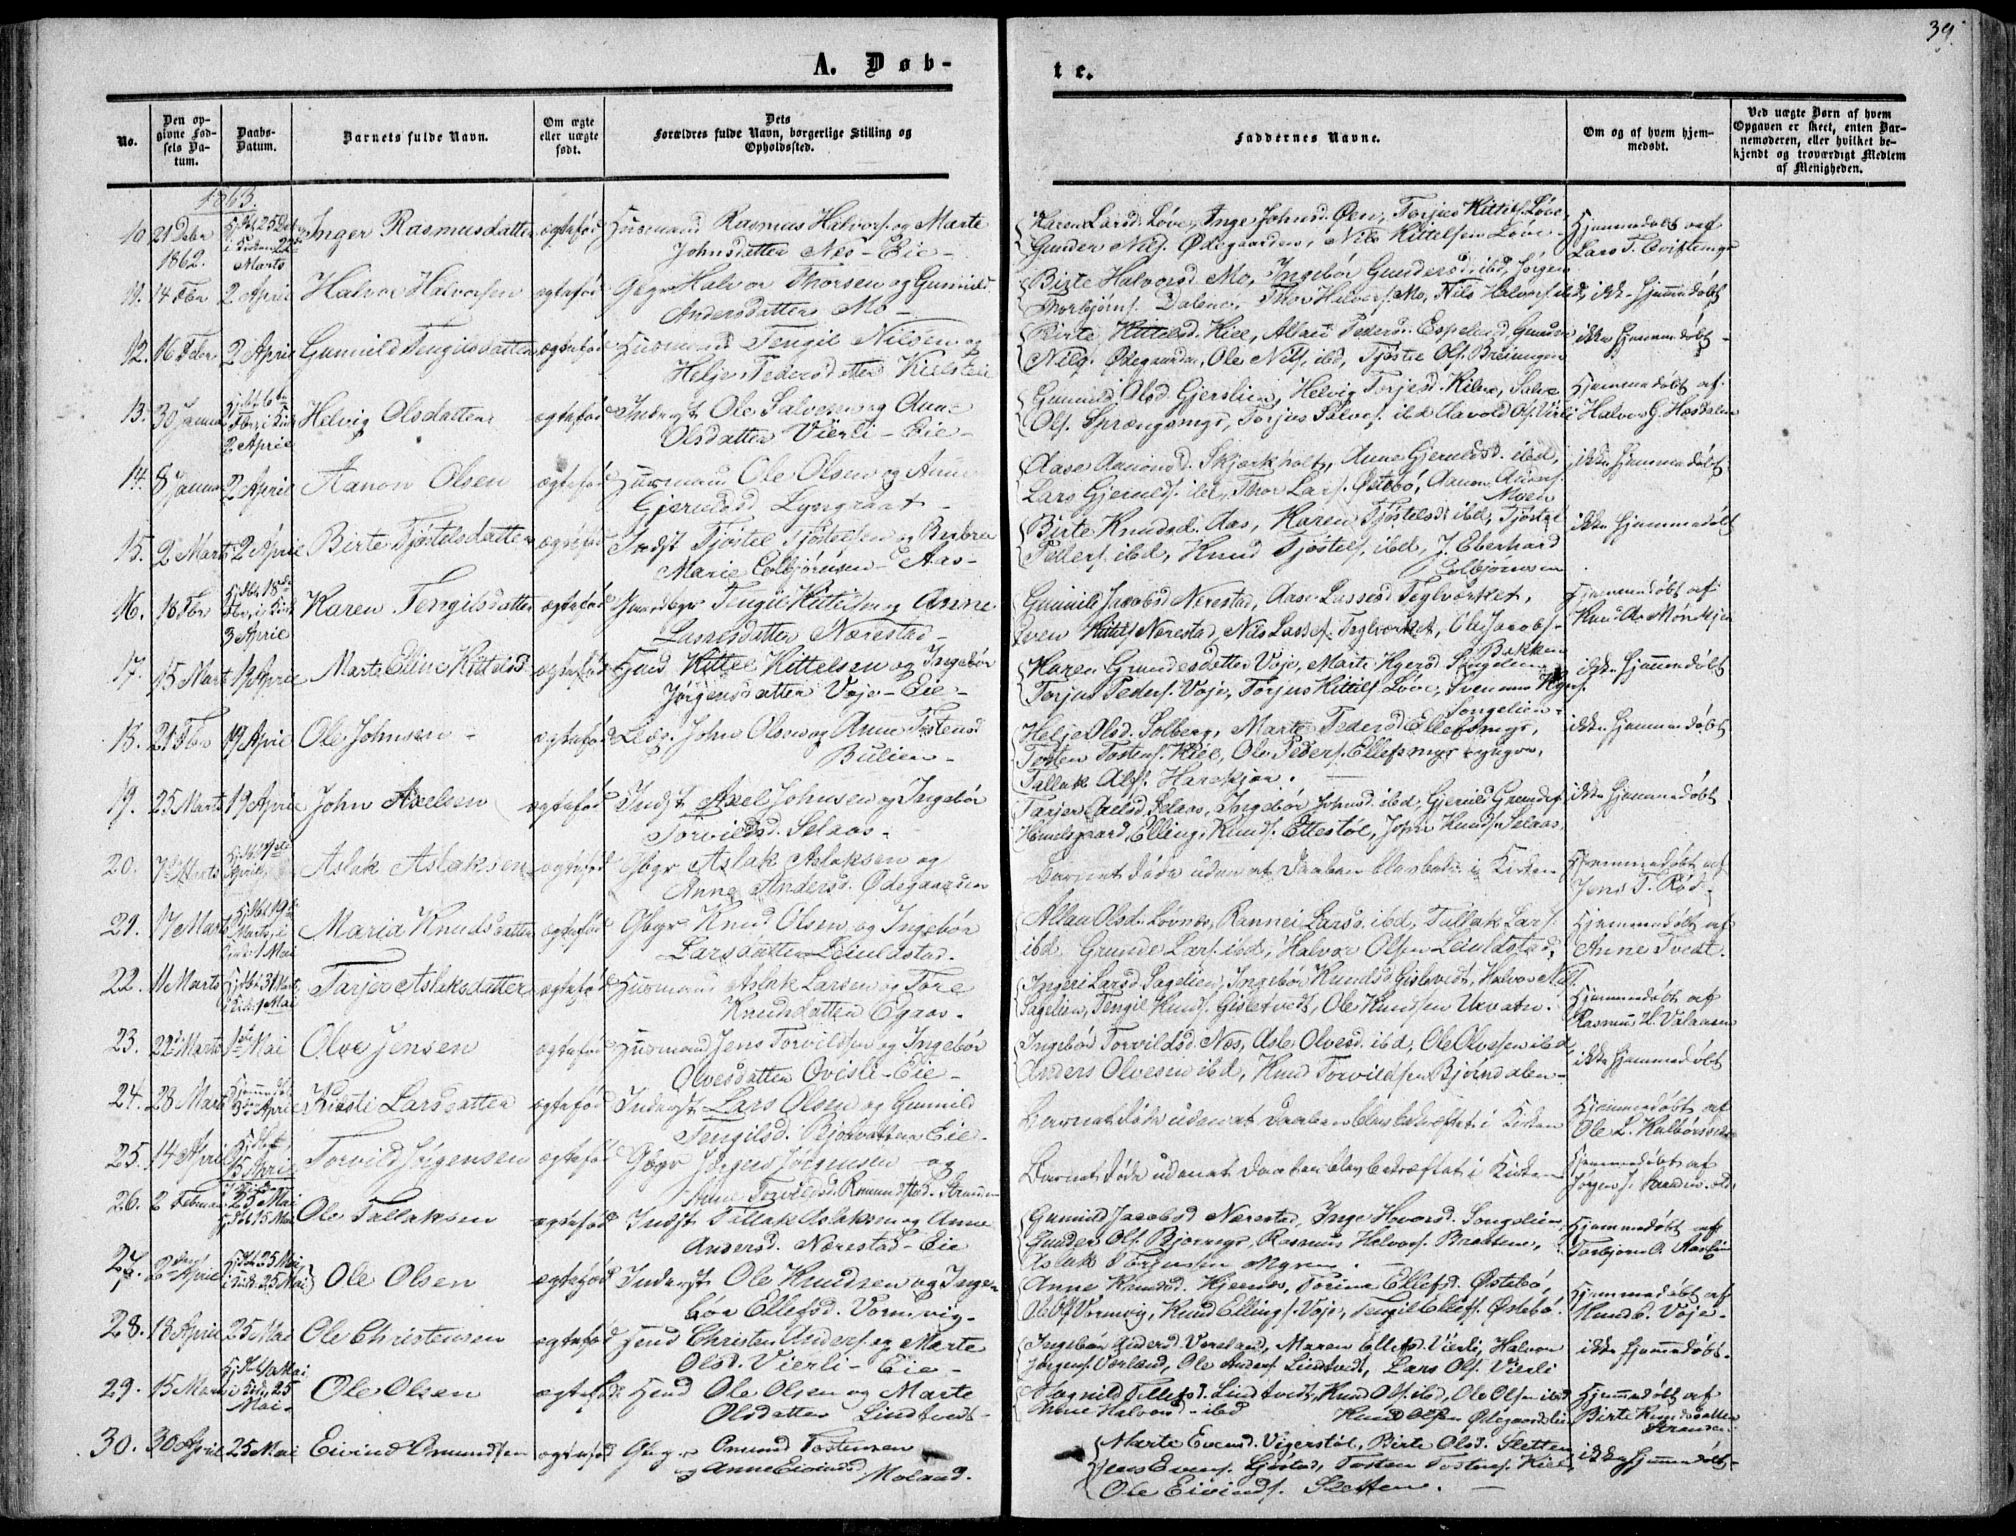 39.
A. Døb-
te.
No.
Den op-
givne Fød-
sels Da-
tum.
Daabs-
Datum.
Barnets fulde Navn.
Om ægte
eller uægte
født.
Dets
Forældres fulde Navn, borgerlige Stilling og
Opholdssted.
Faddernes Navne.
Om og af hvem hjem-
medøbt.
Ved uægte Børn af hvem
Opgaven er skeet, enten Bar-
nemoderen, eller hvilket be-
kjendt og troværdigt Medlem
af Menigheden.
1863.
10 21 Debr 1862. Marts Inger Rasmusdatter ægtefød Husmand Rasmus Halvors. og Marte
Johnsdatter Næs-Eie-
Karen Larsd. Løve, Inge Johnsd. Øen, Torjus Kittels. Løve,
Gunder Nils. Ødegaarden, Nils Kittelsen Løve
Hjemmedøbt af
Lars T.
11. 14 Fbr 2 April Halvor Halvorsen ægtefød Gbgr Halvor Thorsen og Gunnild
Andersdatter Mo-
Birte Halvorsd Mo, Ingebør Gundersd. ibid, Jørgen
Thorbjørns. Dalene, Thor Halvors. Mo, Nils Halvors. ibd, ikke hjemmedøbt
12. 16 Febr 2 April Gunnild Tengilsdatter ægtefød Husmand Tengil Nilsen og
Helje Pedersdatter Kielseie
Birte Kittelsd. Kiel, Pedersd. Espeland, Gunder
Nils. Ødegaarden, Ole Nils. ibd, Tjøstel Ols.
ikke hjemmedøbt
13. 30 Januar 2 April Helvig Olsdatter ægtefød Inderst Ole Salvesen og Anne
Olsdatter Vierli-Eie-
Gunnild Olsd Gjerslien, Helvig Torjusd. Kilen, Salve
Ols. Sprængemyr, Torjus Salves. ibd Aavold Ols. Vierli
Hjemmedøbt af
Halvor G. Hasdalen
14. 8 Januar 2 April Aanon Olsen ægtefød Husmand Ole Olsen og Anne
Gjeruldsd Lyngroat-
Aase Aanonsd. Skjærkholt, Anne Gjeruldsd. ibd,
Lars Gjerulds. ibd, Thor Lars. Østebø, Aanon Anders.
Moen
ikke hjemmedøbt
15. 2 Marts 2 April Birte Tjøstelsdatter ægtefød Indst Tjøstel Tjøstelsen og Barbra
Marie Colbjørnsen-Aas-
Birte Knudsd. Aas, Karen Tjøstelsd ibd, Tjøstel
Peders. ibd, Knud Tjøstels. ibd, J. Eberhard
Colbjørnsen
ikke hjemmedøbt
16. 16 Fbr 3 April Karen Tengilsdatter ægtefød Gbgr Tengil Kittelsen og Anne
Lassesdatter Nærestad-
Gunnild Jacobsd Nærestad, Aase Lassesd Teglværket,
Even Kittels Nærestad, Nils Lasses. Teglverket, Ole Jacobs.
Bakken
Hjemmedøbt af
17. 15 Mart 19 April Marte Eline Kittelsd. ægtefød Husmd Kittel Kittelsen og Ingebør
Jørgensdatter Voje-Eie-
Karen Grundesdatter Voje, Marte Songelien
Torjus Peders. Voje, Torjus Kittels Løve,
Songelien-
ikke hjemmedøbt
18. 21 Fbr 19 April Ole Johnsen- ægtefød John Olsen og Anne Tostensd
Bulien-
Helje Olsd. Solberg, Marte Pedersd. Ellefsmyr,
Tosten Tostens. Kiel, Ole Peders. Ellefsmyr yngre,
Tallak Alfs. Hareskjær.
ikke hjemmedøbt
19. 25 Marts 19 April John Axelsen ægtefød Indst Axel Johnsen og Ingebør
Torvildsd. Selaas-
Tarjer Axelsd. Selaas, Ingebør Johnsd. ibd, Gjeruld Grundes.
Ellings, Knuds. Ettestøl, John Knuds. Selaas,
ikke hjemmedøbt
20. 7de Marts Aslak Aslaksen ægtefød Gbgr Aslak Aslaksen og
Anne Andersd. Ødegaarden
Barnet døde uden at Daaben blev bekr. i Kirken
Hjemmedøbt af
Jens T. Rød-
21. 17 Marts 1 Mai Maria Knudsdatter ægtefød Gbgr Knud Olsen og Ingebør
Larsdatter Leiuldstad.
Olsd. Løvnes, Rannei Larsd. ibd, Tallak Lars.
ibd Grunde Lars. ibd, Halvor Olsen Leiuldstad,
Hjemmedøbt af
Anne Tvedt.
22. 11 Marts 1 Mai Tarjer Aslaksdatter ægtefød Husmand Aslak Larsen og Tore
Knudsdatter Egaas.
Ingeri Larsd Sagelien, Ingebør Knudsd Gisletvedt, Halvor Nils.
Sagelien, Tengil Knuds. Gisletvedt, Ole Knudsen Urvatn.
Hjemmedøbt af
Rasmus H. Valaasen
23. 22d Marts 1ste Mai Olve Jensen ægtefød Husmand Jens Torvildsen og Ingebør
Olvesdatter Qvisli-Eie-
Ingebør Torvildsd. Næs, Asle Olvesd. ibd, Ole Olvesen ibd,
Anders Olvesen ibd, Knud Torvildsen Bjørndalen-
ikke hjemmedøbt
24. 28 Marts April Kirsti Larsdatter ægtefød Inderst Lars Olsen og Gunnild
Tengilsd. Eie-
Barnet døde uden at Daaben blev bekræftet i Kirken
Hjemmedøbt af
Ole L.
25. 14 April 15 April Torvild Jørgensen ægtefød Gbgr Jørgen Jørgensen og
Anne Torvildsd. Stranden
Barnet døde uden at Daaben blev bekræftet i Kirken
Hjemmedøbt af
Jørgen J. Stranden. old.
26. 2 Februar 25 Mai Ole Tallaksen ægtefød Indst Tallak Aslaksen og Anne
Andersd. Nærestad-Eie
Gunnild Jacobsd Nærestad, Inge Hovorsd. Songelien,
Gunder Ols. Bjørnmyr, Rasmus Halvors. Braaten,
Aslak Torjusen Myren.
Hjemmedøbt af
Torbjørn O.
27. 2den April 25 Mai Ole Olsen ægtefød Inderst Ole Knudsen og Inge-
bør Ellefsd. Vormvig-
Anne Knudsd. Hjernes, Torine Ellefsd. Østebø,
Ole Ols Vormvig, Knud Ellings. Voje, Tengil Ellefs. Østebø.
Hjemmedøbt af
Knud E. Voje-
28. 18 April 25 Mai Ole Christensen ægtefød Hmd Christen Anders. og Marte
Olsd. Vierli-Eie-
Ingebør Andersd. Vereland, Maren Ellefsd. Vierli, Halvor
Jørgens. Verland, Ole Anders. Lindtvedt, Lars Ols. Vierli
ikke hjemmedøbt-
29. 15 Marts 25 Mai- Ole Olsen ægtefød Hmd Ole Olsen og Marte
Olsdatter Lindtvedt-
Tellefsd. Lindtvedt, Knud Ols. ibd, Ole Olsen ibd
Anne Halvorsd-ibd Knud Olsen Ødegaardslien
Hjemmedøbt af
Birte Knudsdatter
Stranden.
30. 30 April 25 Mai Eivind Omundsen ægtefød Gbgr Omund Tostensen
og Anne Eivindsd Moland.
Marte Evensd. Vigerstøl, Birte Olsd. Sletten,
Jens Evens. Gjøstad, Tosten Tostens. Kiel,
Ole Eivinds. Sletten.
ikke hjemmedøbt-